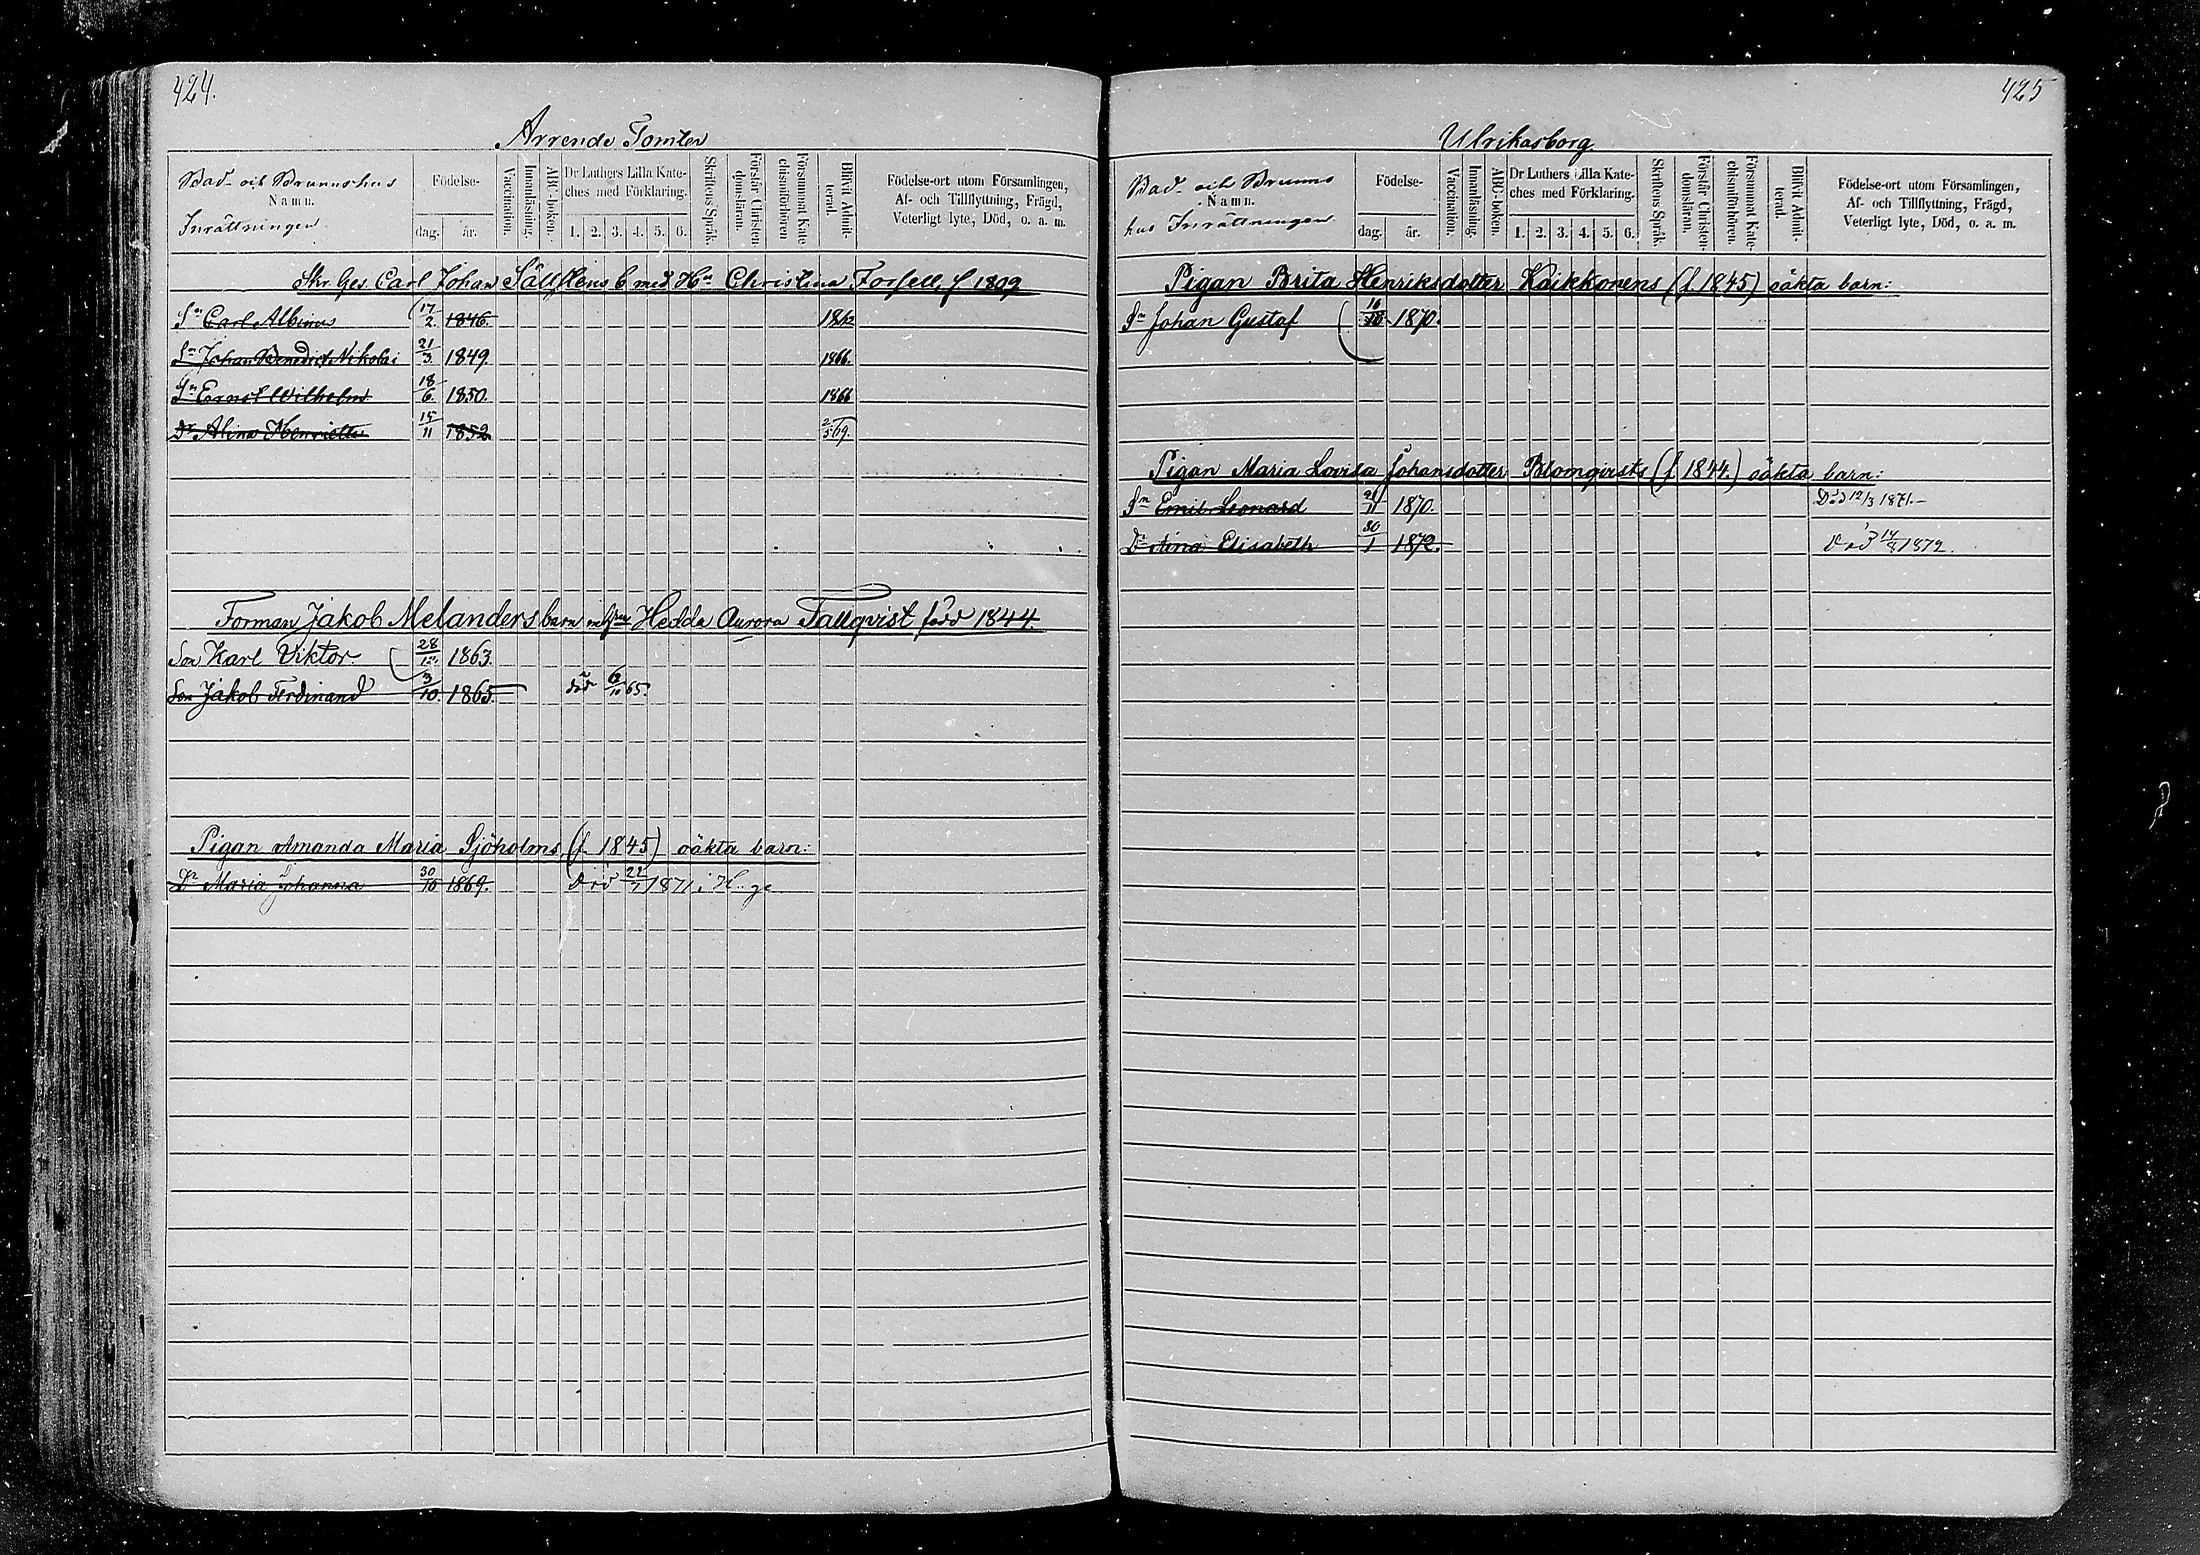 424.
Arrende Tomter
Bad- och Brunnshus
Namn.
Inrättningen
Födelse-
dag. år.
Vaccination.
Innanläsning.
ABC-boken.
Dr Luthers Lilla Kate-
ches med Förklaring.
1. 2. 3. 4. 5. 6.
Skriftens Språk.
Förstår Christen-
domsläran.
Försummat Kate-
chismiförhören
Blifvit Admit-
terad.
Födelse-ort utom Församlingen,
Af- och Tillflyttning, Frägd,
Veterligt lyte, Död, o. a. m.
Skr. Ges. Carl Johan b med Hu Christina Forsell, f 1809
Sn Carl Albinus 17/2 1846. 1862
Sn Johan Benedict Nikolai 21/3 1849. 1866.
Sn Ernst Wilhelm 18/6 1850. 1866
Dr Alina Henrietta 15/11 1852 2/5 69.
Forman Jakob Melanders barn m hu Hedda Aurora Tallqvist född 1844.
Son Karl Viktor 28/12 1863.
Son Jakob Ferdinand 3/10. 1865. död 6/10 65.
Pigan Amanda Maria Sjöholms (f. 1845) oäkta barn:
Dr Maria Johanna 30/10 1869. Död 22/7 1871 i
425
Ulrikasborg
Bad- och Brunns
Namn.
hus Inrättningen
Födelse-
dag. år.
Vaccination.
Innanläsning.
ABC-boken.
Dr Luthers Lilla Kate-
ches med Förklaring.
1. 2. 3. 4. 5. 6.
Skriftens Språk.
Förstår Christen-
domsläran.
Försummat Kate-
chismiförhören.
Blifvit Admit-
terad.
Födelse-ort utom Församlingen,
Af- och Tillflyttning, Frägd,
Veterligt lyte, Död, o. a. m.
Pigan Brita Henriksdotter Kaikkonens (f. 1845) oäkta barn:
Sn Johan Gustaf 16/10 1870.
Pigan Maria Lovisa Johansdotter Blomqvists (f. 1844.) oäkta barn:
Sn Emil Leonard 21/11 1870. Död 12/3 1871.-
Dr Aina Elisabeth 30/1 1872. Död 14/8 1872.